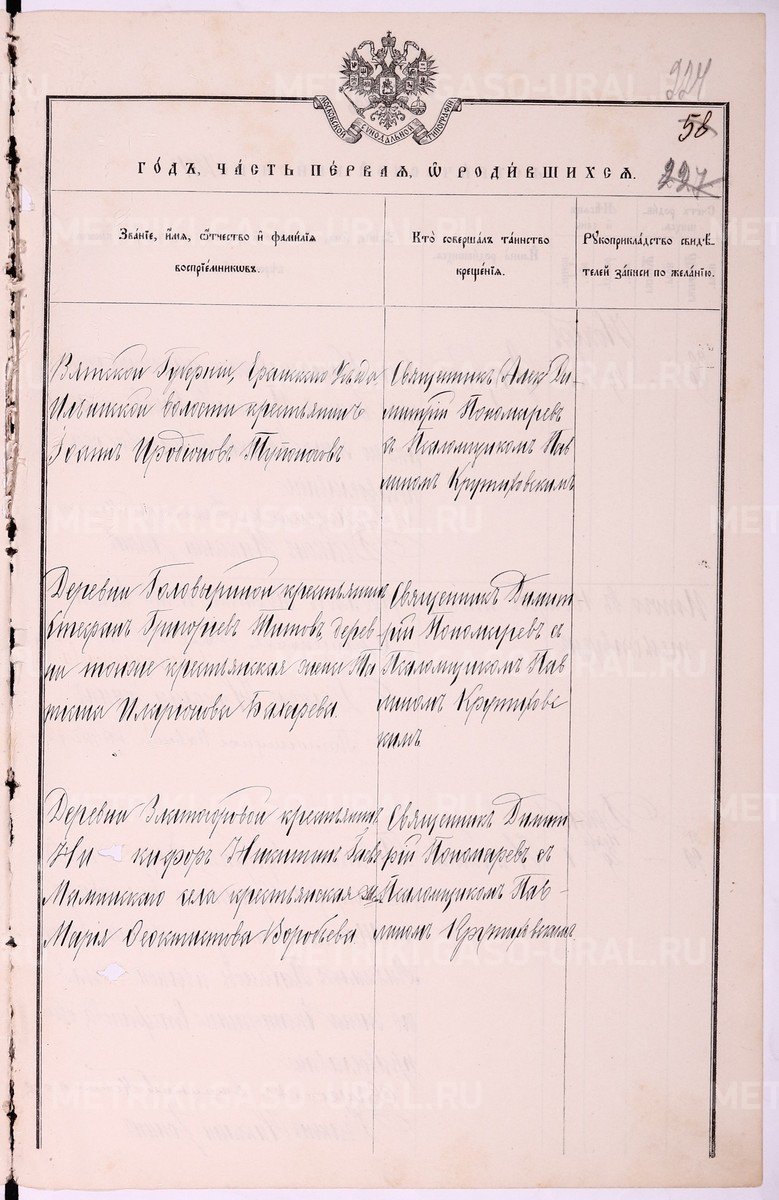 МОСКОВСКОЙ СѴНОДАЛЬНОЙ ТИПОГРАФІИ
224
58
227
ГО́ДЪ, ЧА́СТЬ ПЕ́РВАЯ, Ѡ҆ РОДИ́ВШИХСЯ.
ЗВА́НІЕ, И҆́МЯ, Ѻ҆́ТЧЕСТВО И҆ ФАМИ́ЛІЯ
ВОСПРІЕ́МНИКѠВЪ.
КТО̀ СОВЕРША́ЛЪ ТА́ИНСТВО
КРЕЩЕ́НІЯ.
РУКОПРИКЛА́ДСТВО СВИДѢ́-
ТЕЛЕЙ ЗА́ПИСИ ПО ЖЕЛА́НІЮ.
Вятской Губерніи, Уѣзда
Ильинской волости крестьянинъ
Іоаннъ Иродіоновъ Тупоноговъ
Священникъ Ди-
митрій Пономаревъ
съ Псаломщикомъ Пав-
линомъ Крутиховскимъ
Деревни Головыриной крестьянинъ
Стефанъ Григорьевъ Титовъ дерев-
ни тоиже крестьянская жена Та
тіана Иларіонова Бахарева.
Священникъ Димит
рій Пономаревъ съ
Псаломщикомъ Пав
линомъ Крутиховс
кимъ
Деревни Златогоровой крестьянинъ
Ни кифоръ Никитинъ
Маминскаго села крестьянская
Марія Феоктистова Воробьева
Священникъ Димит
рій Пономаревъ съ
Псаломщикомъ Пав-
линомъ Крутиховскимъ
METRIKI.GASO-URAL.RU